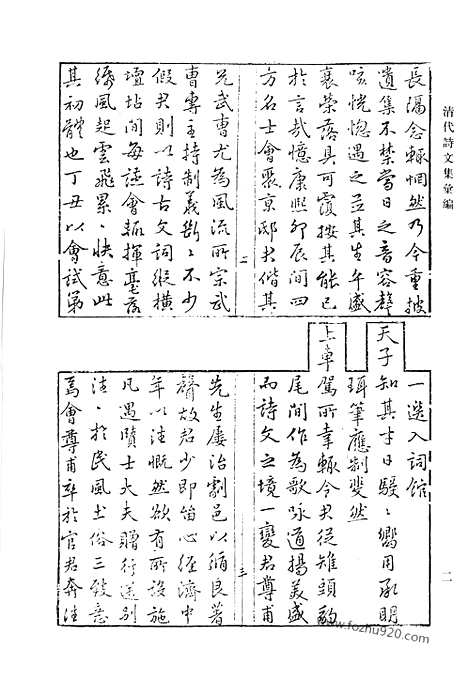 清代詩文集彙編
長隔念輒惘然乃今重披
遺集不禁當日之音容聲
咳恍惚遇之並其生年盛
衰榮落具可覆按其能已
於言哉憶康熙卯辰間四
方名士會聚京邸君偕其
二
兄武曹尤為風流所宗武
曹專主持制義斷斷不少
假君則以詩古文詞縱橫
壇坫間每讌會輒揮毫落
紙風起雲飛累累快意此
其初體也丁丑以會試第
一選入詞館
天子知其才日駸駸嚮用承明
珥筆應制斐然
上車駕所幸輒令君從雉頭豹
尾間作為歌咏道揚美盛
而詩文之境一變君尊甫
三
先生屢治劇邑以循良著
聲故君少即留心經濟中
年以往慨然欲有所設施
凡遇隤士大夫贈行送別
往往於民風土俗三致意
焉會尊甫卒於官君奔往
二
www.fozhu920.com